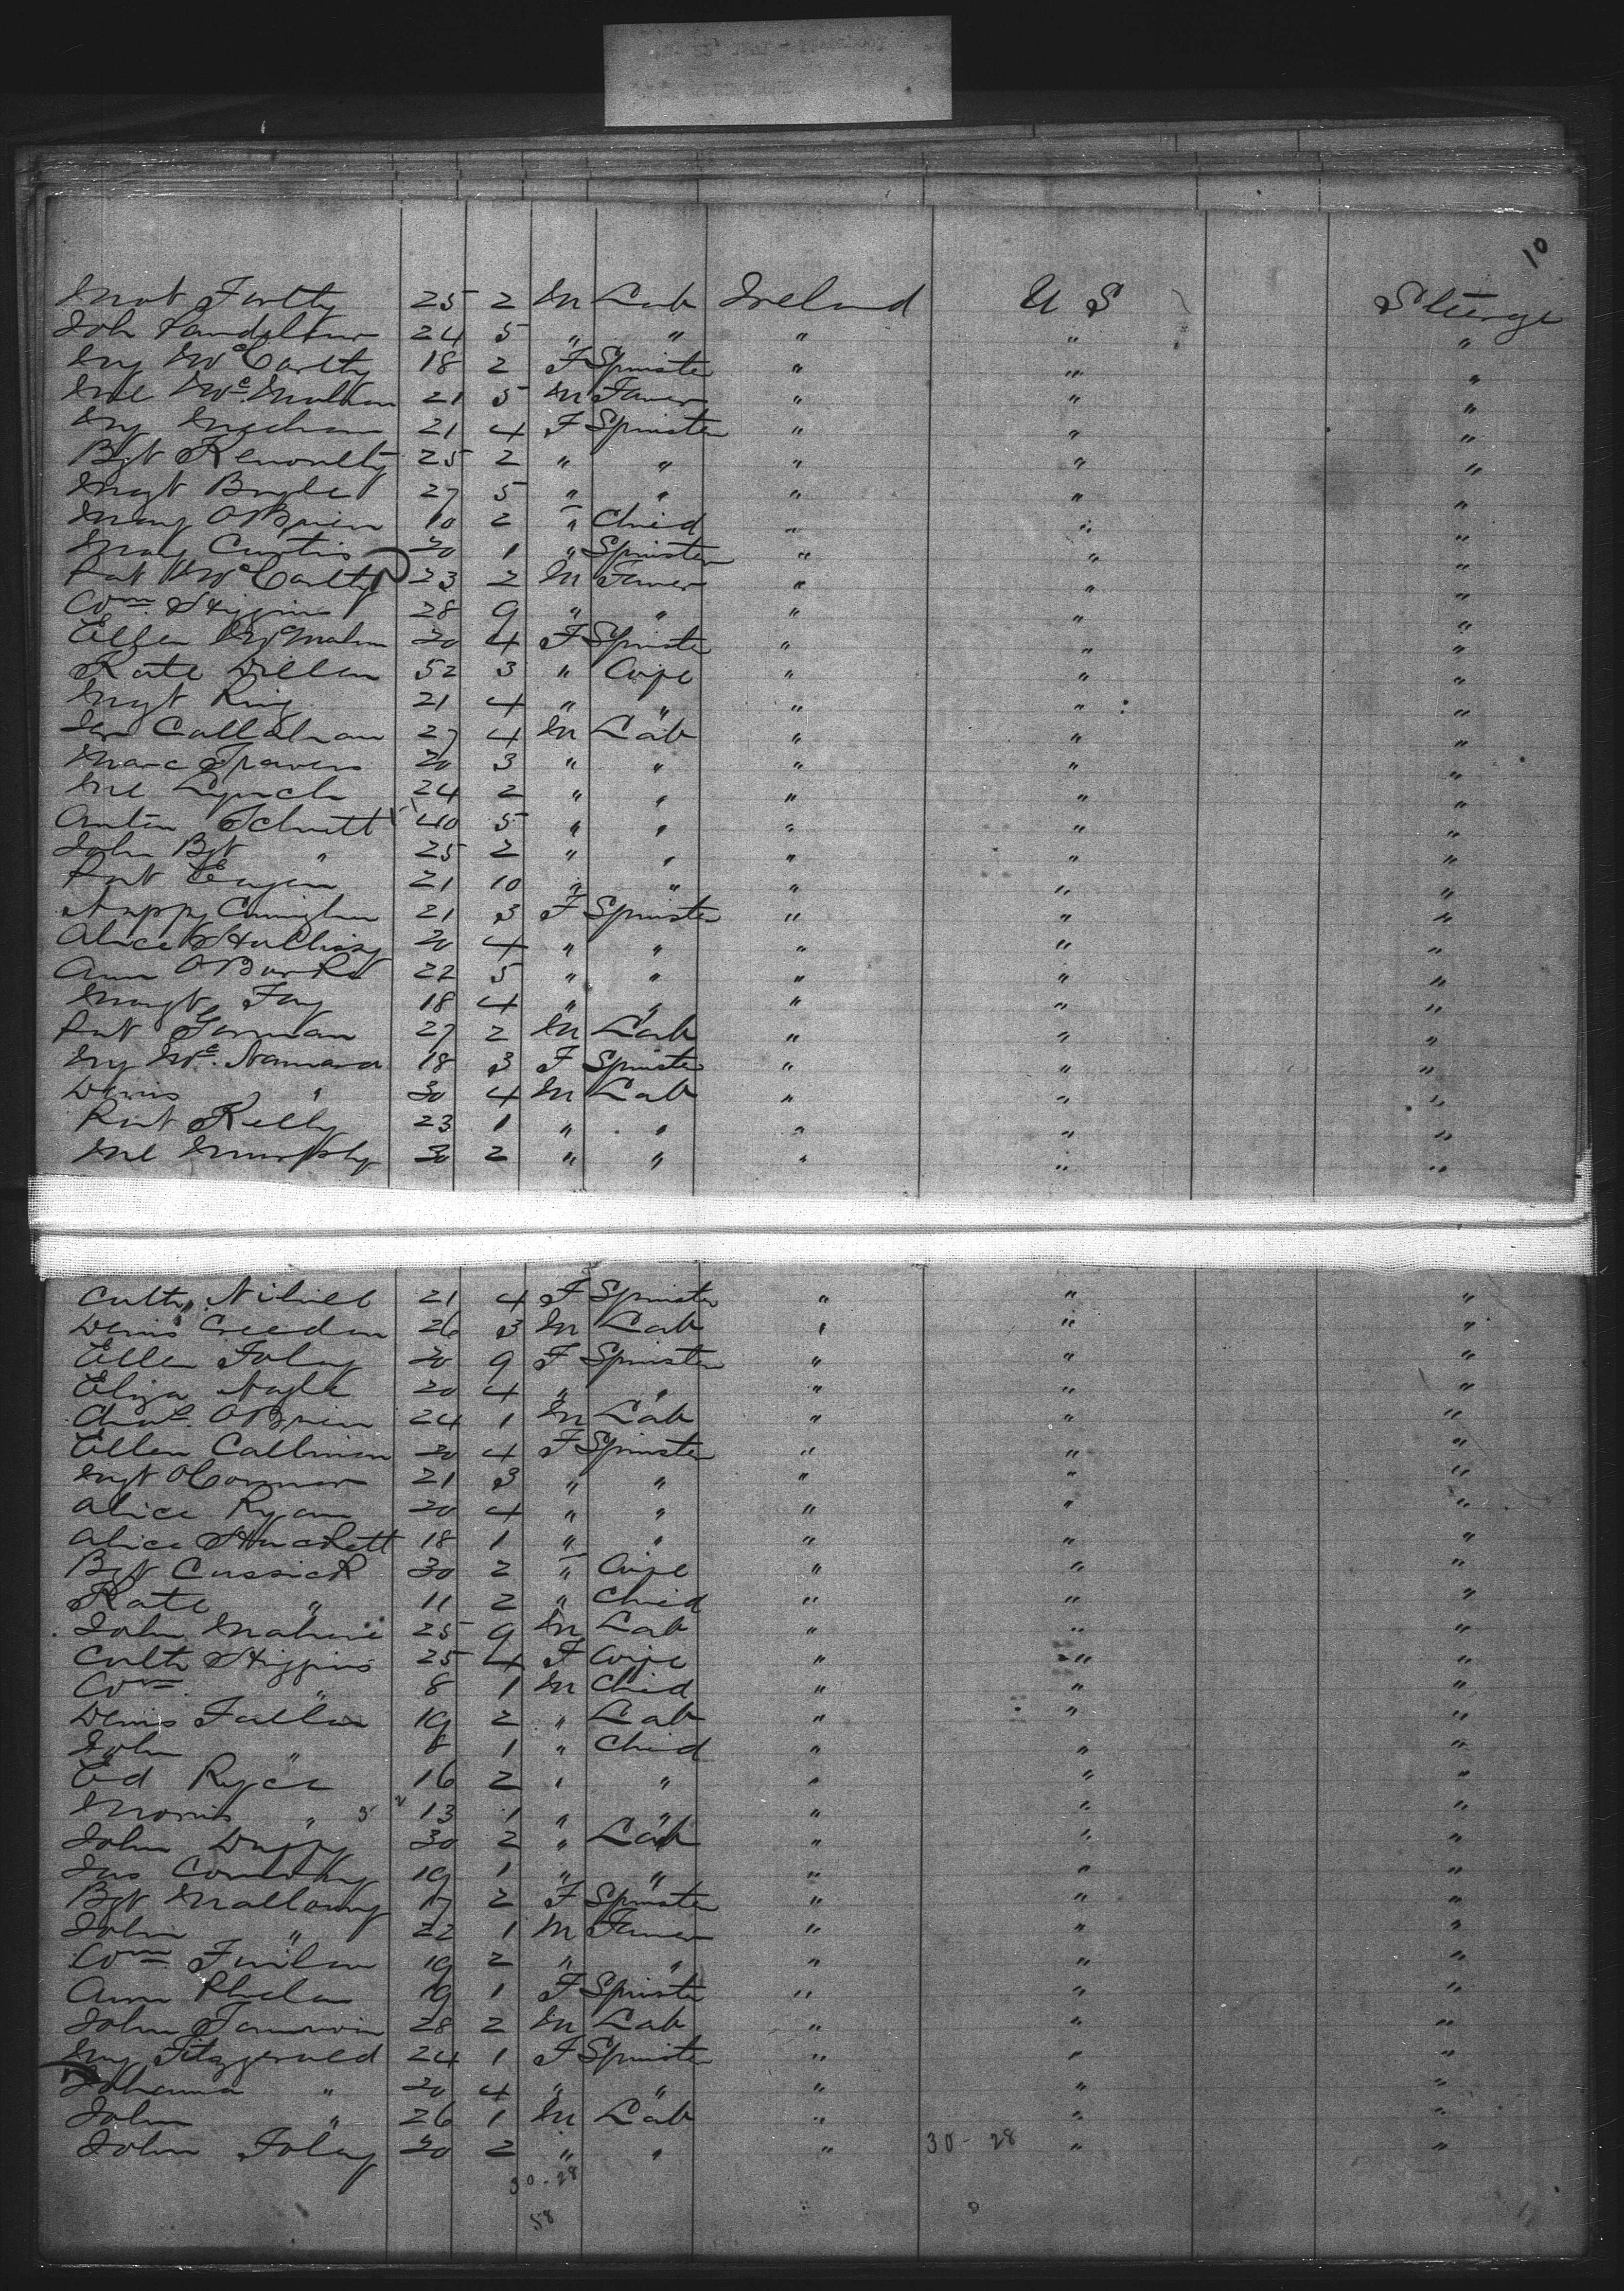 10
25 2 M Lab Ireland U S Steerage
Joh 24 5 " " " " "
My McCarthy 18 2 F Spinster " " "
Ml McMahon 21 5 M Farmer " " "
My Meehan 21 4 F Spinster " " "
Bgt 25 2 " " " " "
Mgt Boyle 27 5 " " " " "
Mary OBrien 10 2 " Child " " "
Mary Curtis 20 1 " Spinster " " "
Pat McCarthy 23 2 M Farmer " " "
Wm Higgins 28 9 " " " " "
Ellen McMahon 20 4 F Spinster " " "
Kate Dillon 52 3 " Wife " " "
Mgt Ring 21 4 " " " " "
Callahan 27 4 M Lab " " "
Travers 20 3 " " " " "
Ml Lynch 24 2 " " " " "
Anton Schmitt 40 5 " " " " "
John Bgt " 25 2 " " " " "
Pat Eagan 21 10 " " " " "
21 3 F Spinster " " "
Alice 20 4 " " " " "
Ann 22 5 " " " " "
Margt Fay 18 4 " " " " "
Pat Gorman 27 2 M Lab " " "
My McNamara 18 3 F Spinster " " "
Denis " 30 4 M Lab " " "
Pat Kelly 23 1 " " " " "
Ml Murphy 30 2 " " " " "
Cath 21 4 F Spinster " " "
Denis Creedon 26 3 M Lab " " "
Ellen Foley 20 9 F Spinster " " "
Eliza Nagle 20 4 " " " " "
Chas. OBrien 24 1 M Lab " " "
Ellen Callinan 20 4 F Spinster " " "
Mgt OConnor 21 3 " " " " "
Alice Ryan 20 4 " " " " "
Alice Hackett 18 1 " " " " "
Bgt Cussick 30 2 " Wife " " "
Kate " 11 2 " Child " " "
John 25 9 M Lab " " "
Cath Higgins 25 4 F Wife " " "
Wm. " 8 1 M Child " " "
Denis Fallon 19 2 " Lab " " "
John " 8 1 " Child " " "
Ed Ryce 16 2 " " " " "
Morris " 13 1 " " " " "
John Duffy 30 2 " Lab " " "
Jas 19 1 " " " " "
Bgt Mallowny 17 2 F Spinster " " "
John " 22 1 M Farmer " " "
Wm 19 2 " " " " "
Ann Phelan 19 1 F Spinster " " "
John 28 2 M Lab " " "
My Fitzgerald 24 1 F Spinster " " "
Johanna " 20 4 " " " " "
John " 26 1 M Lab " " "
John Foley 20 2 " " " 30-28 " "
30-28
58